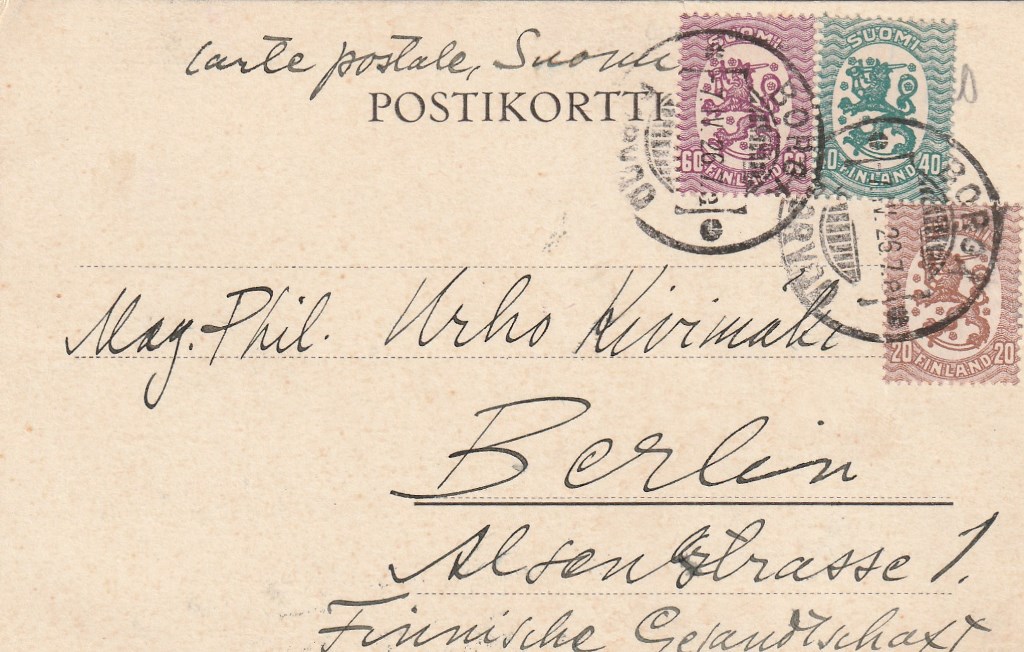 Carte postale, Suomi
POSTIKORTTI
SUOMI
60 60
FINLAND
SUOMI
40
FINLAND
BORGÅ
PORVOO
BORGÅ
PORVOO
20 20
FINLAND
Mag. Phil. Urho Kivimäki
Berlin
Alsenstrasse 1.
Finnische Gesandtschaft